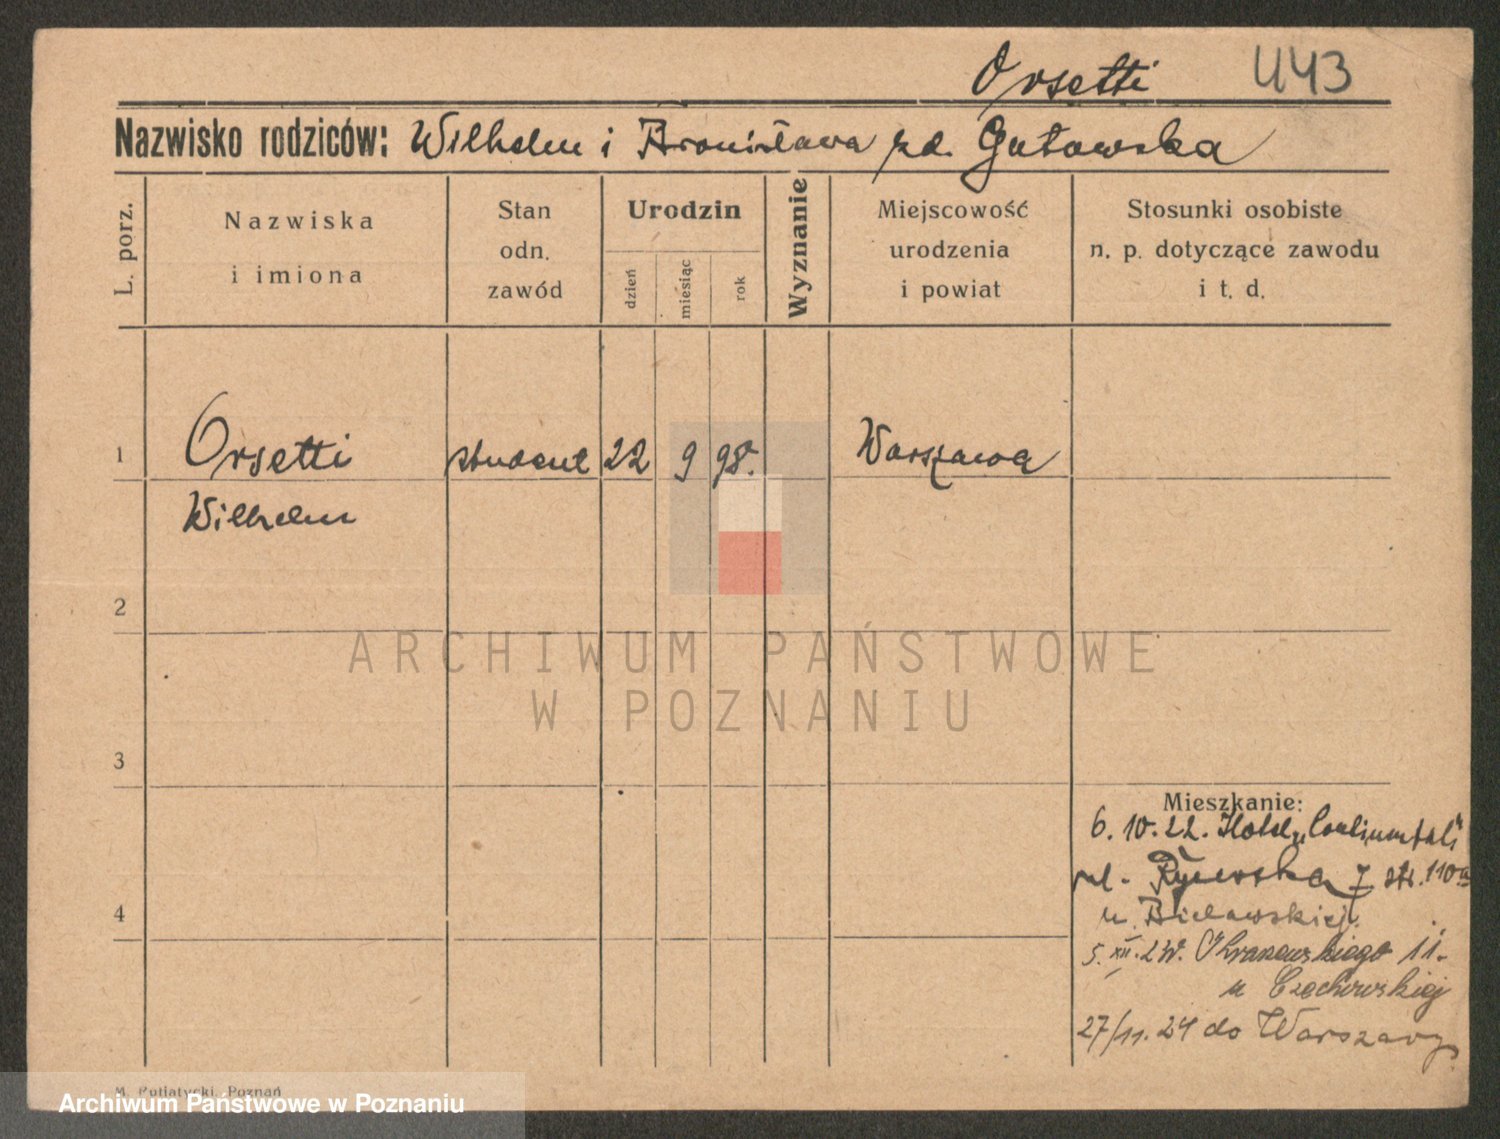 Orsetti 443
Nazwisko rodziców: Wilhelm i Bronisława zd. Gutowska
L. porz.
Nazwiska
i imiona
Stan
odn.
zawód
Urodzin
dzień
miesiąc
rok
Wyznanie
Miejscowość
urodzenia
i powiat
Stosunki osobiste
n. p. dotyczące zawodu
i t. d.
1 Orsetti student 22 9 98. Warszawa
Wilhelm
2
3
4
Mieszkanie:
6. 10. 22. Hotel „Continental"
ul. 7
u. Bielawskiej
5. XII. 11.
u Czechowskiej
27/11. 24 do Warszawy
M. Putiatycki, Poznań
ARCHIWUM PAŃSTWOWE
W POZNANIU
Archiwum Państwowe w Poznaniu